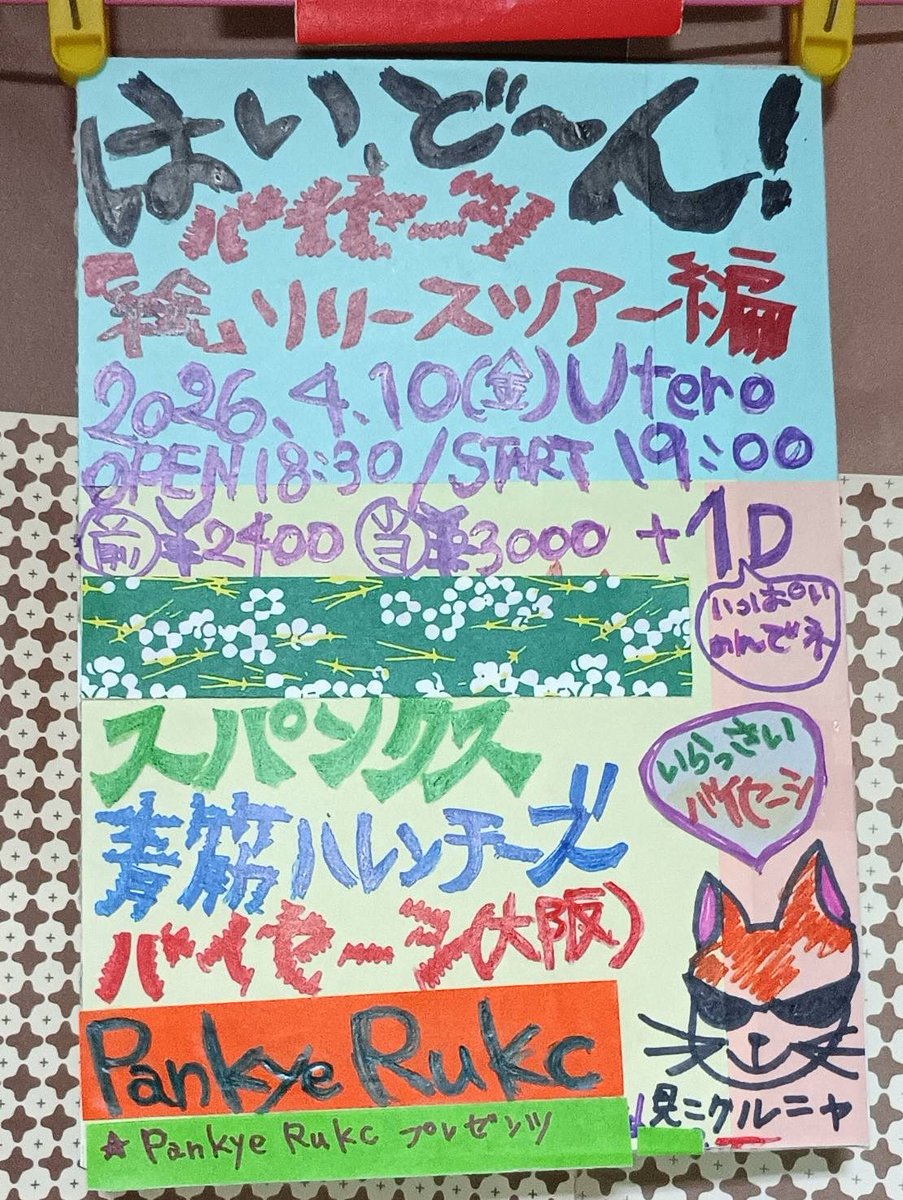 はいど〜ん!
バイセーシ
「絵」リリースツアー編
2026.4.10(金)Utero
OPEN 18:30/START 19:00
前¥2400 当¥3000 +1D
いっぱい
のんでネ
スパンクス
いらっさい
バイセーシ
青筋ハレンチーズ
バイセーシ(大阪)
Pankye Rukc
見ニクルニャ
★Pankye Rukc プレゼンツ